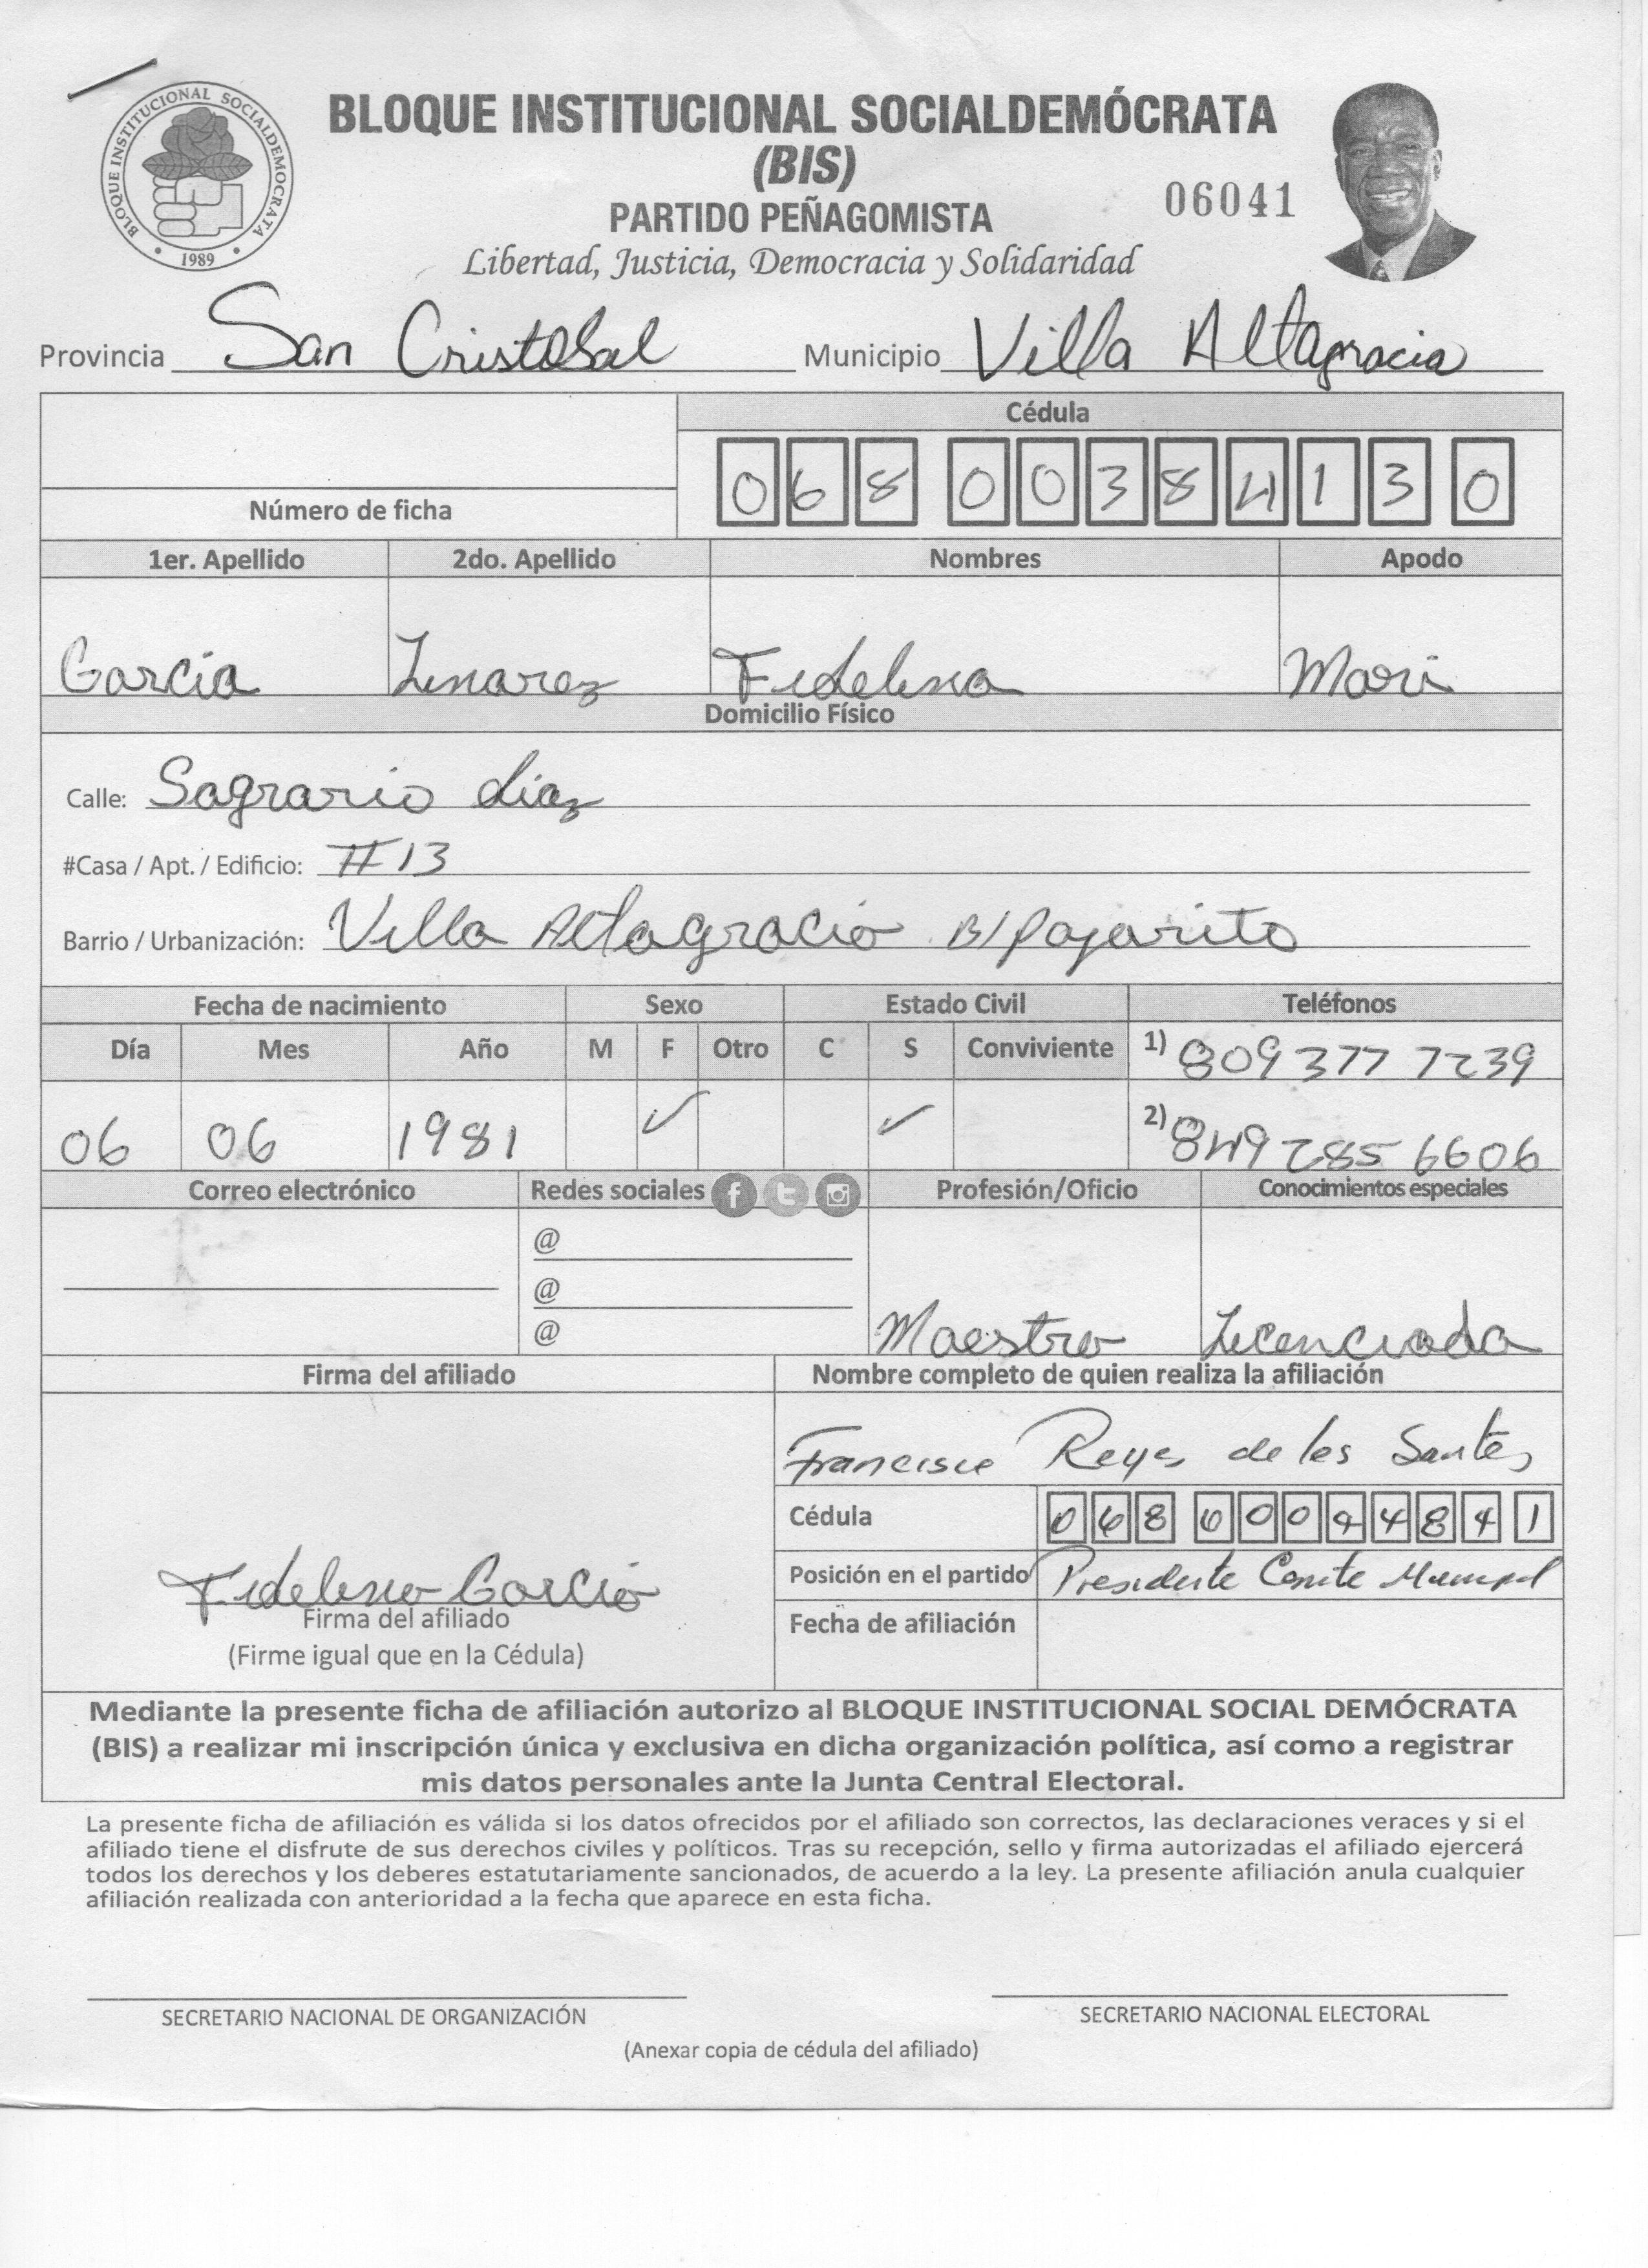 BLOQUE INSTITUCIONAL SOCIALDEMOCRATA
1989
BLOQUE INSTITUCIONAL SOCIALDEMÓCRATA
(BIS)
PARTIDO PEÑAGOMISTA
06041
Libertad, Justicia, Democracia y Solidaridad
Provincia San Cristobal Municipio Villa Altagracia
Cédula
068 0038413 0
Número de ficha
1er. Apellido 2do. Apellido Nombres Apodo
Garcia Linarez Fidelina Mari
Domicilio Físico
Calle: Sagrario Diaz
#Casa / Apt. / Edificio: #13
Barrio / Urbanización: Villa Altagracia B/ Pajarito
Fecha de nacimiento Sexo Estado Civil Teléfonos
Día Mes Año M F Otro C S Conviviente 1) 809 377 7239
06 06 1981 ✓ ✓ 2) 849 285 6606
Correo electrónico Redes sociales Profesión/Oficio Conocimientos especiales
@
@
@
Maestra Licenciada
Firma del afiliado Nombre completo de quien realiza la afiliación
Francisco Reyes de los Santos
Cédula 068 000 4841
Fidelina Garcia
Posición en el partido Presidente Comite
Firma del afiliado
Fecha de afiliación
(Firme igual que en la Cédula)
Mediante la presente ficha de afiliación autorizo al BLOQUE INSTITUCIONAL SOCIAL DEMÓCRATA
(BIS) a realizar mi inscripción única y exclusiva en dicha organización política, así como a registrar
mis datos personales ante la Junta Central Electoral.
La presente ficha de afiliación es válida si los datos ofrecidos por el afiliado son correctos, las declaraciones veraces y si el
afiliado tiene el disfrute de sus derechos civiles y políticos. Tras su recepción, sello y firma autorizadas el afiliado ejercerá
todos los derechos y los deberes estatutariamente sancionados, de acuerdo a la ley. La presente afiliación anula cualquier
afiliación realizada con anterioridad a la fecha que aparece en esta ficha.
SECRETARIO NACIONAL DE ORGANIZACIÓN SECRETARIO NACIONAL ELECTORAL
(Anexar copia de cédula del afiliado)